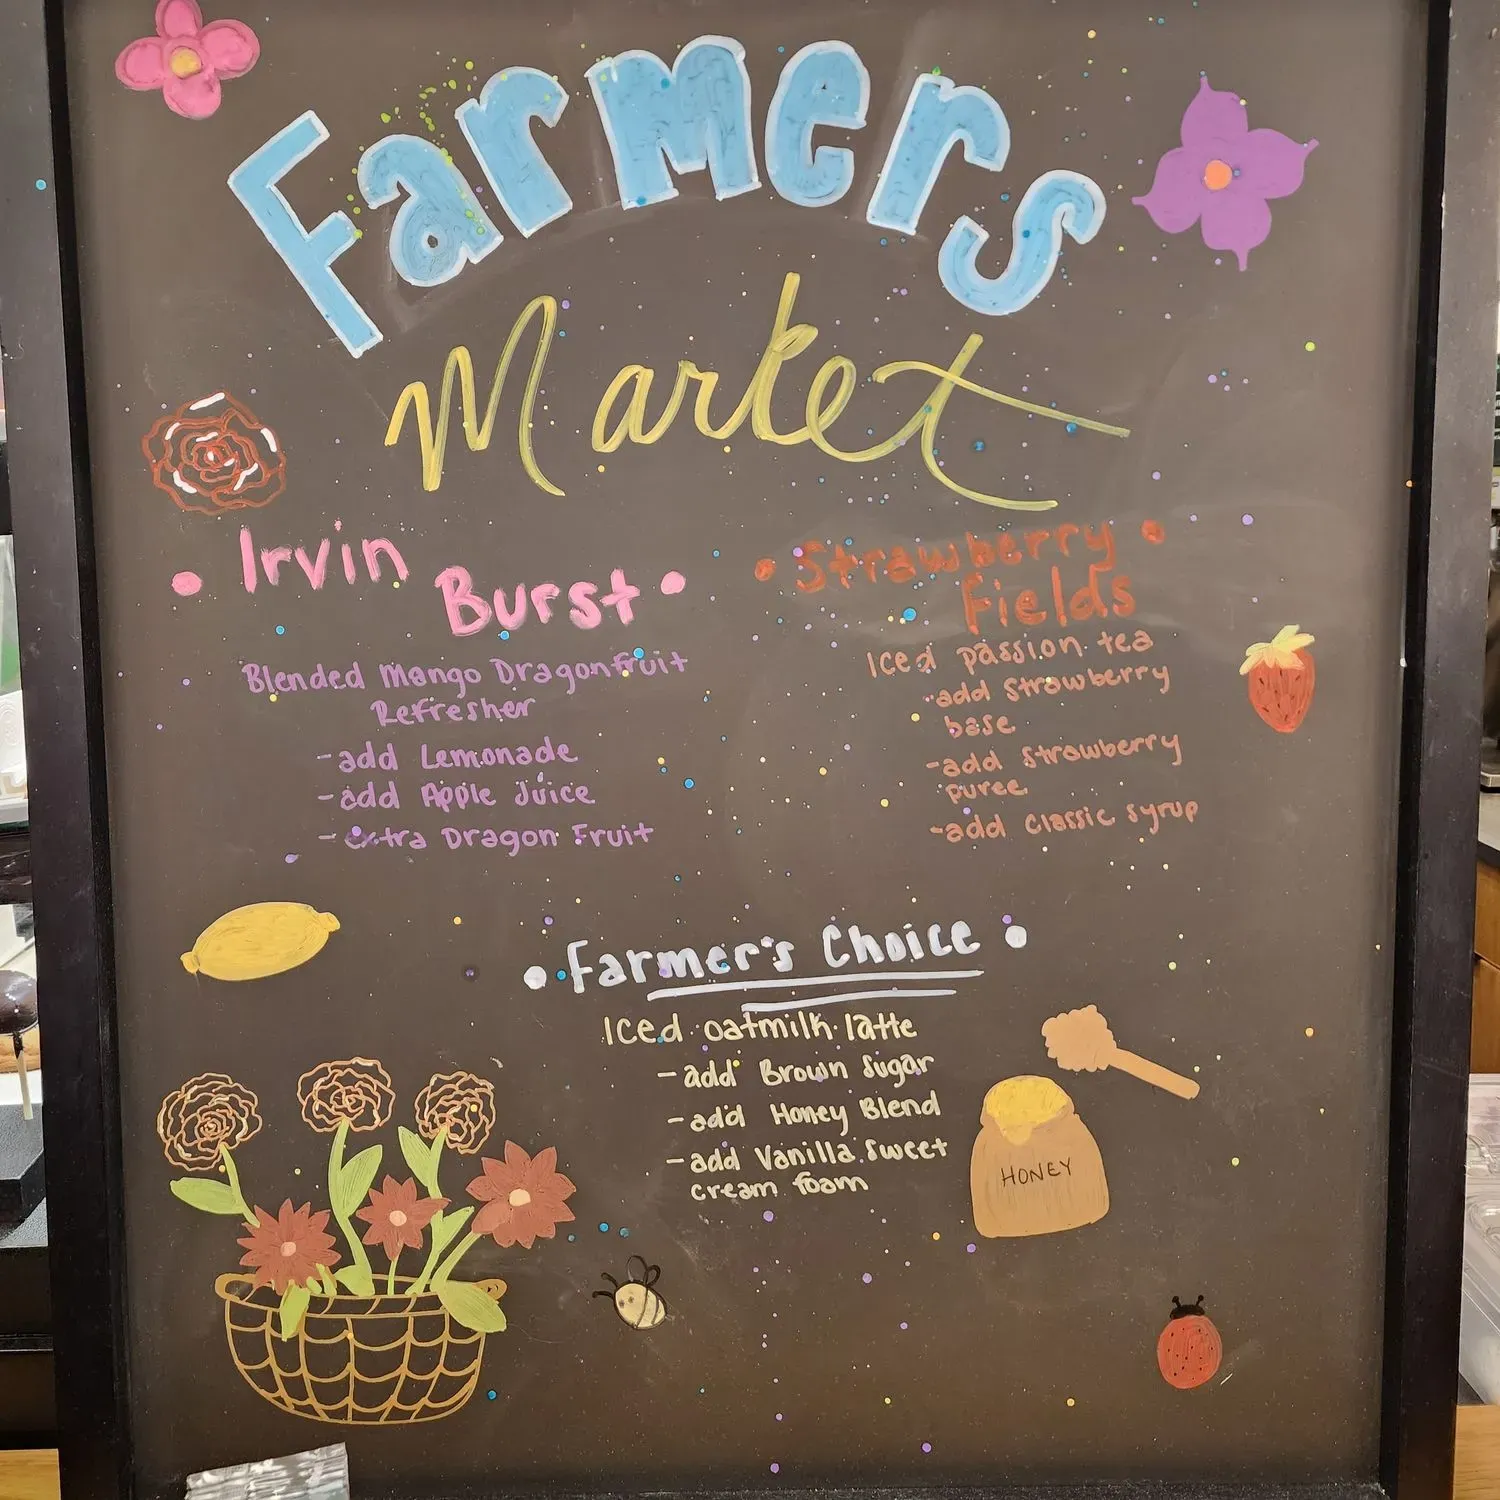 Farmers
Market
• Irvin
Burst •
Blended Mango Dragonfruit
Refresher
-add Lemonade
-add Apple Juice
-extra Dragon Fruit
• Strawberry •
Fields
Iced passion tea
-add Strawberry
base
-add Strawberry
puree
-add Classic syrup
• Farmer's Choice •
Iced oatmilk latte
-add Brown Sugar
-add Honey Blend
-add Vanilla Sweet
cream foam
HONEY